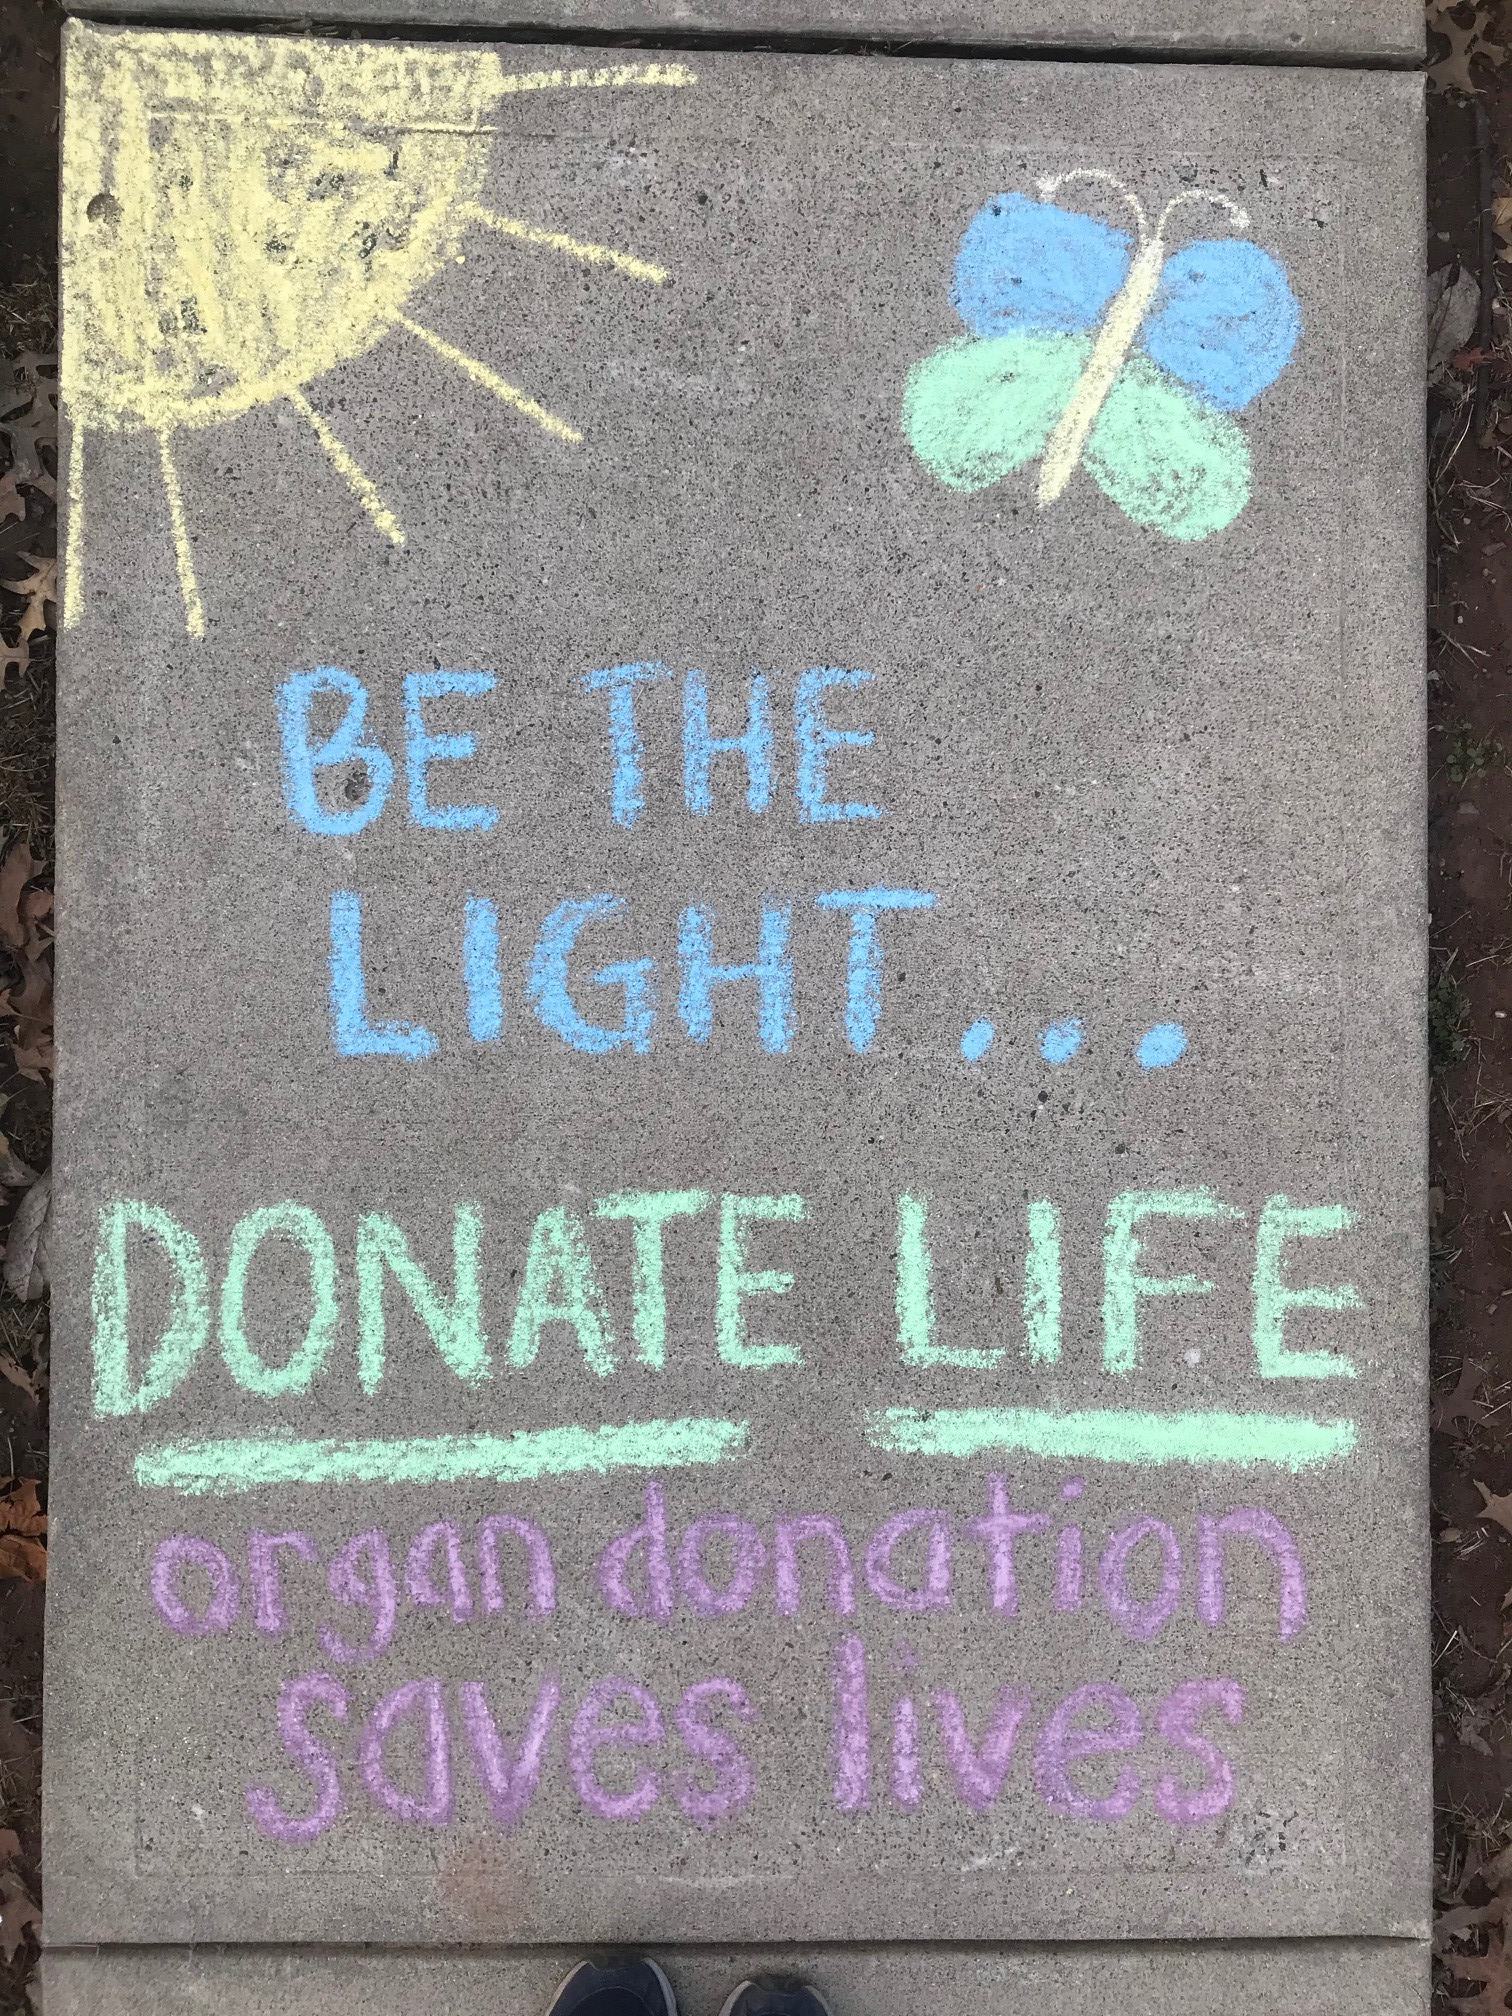 BE THE
LIGHT...
DONATE LIFE
organ donation
saves lives